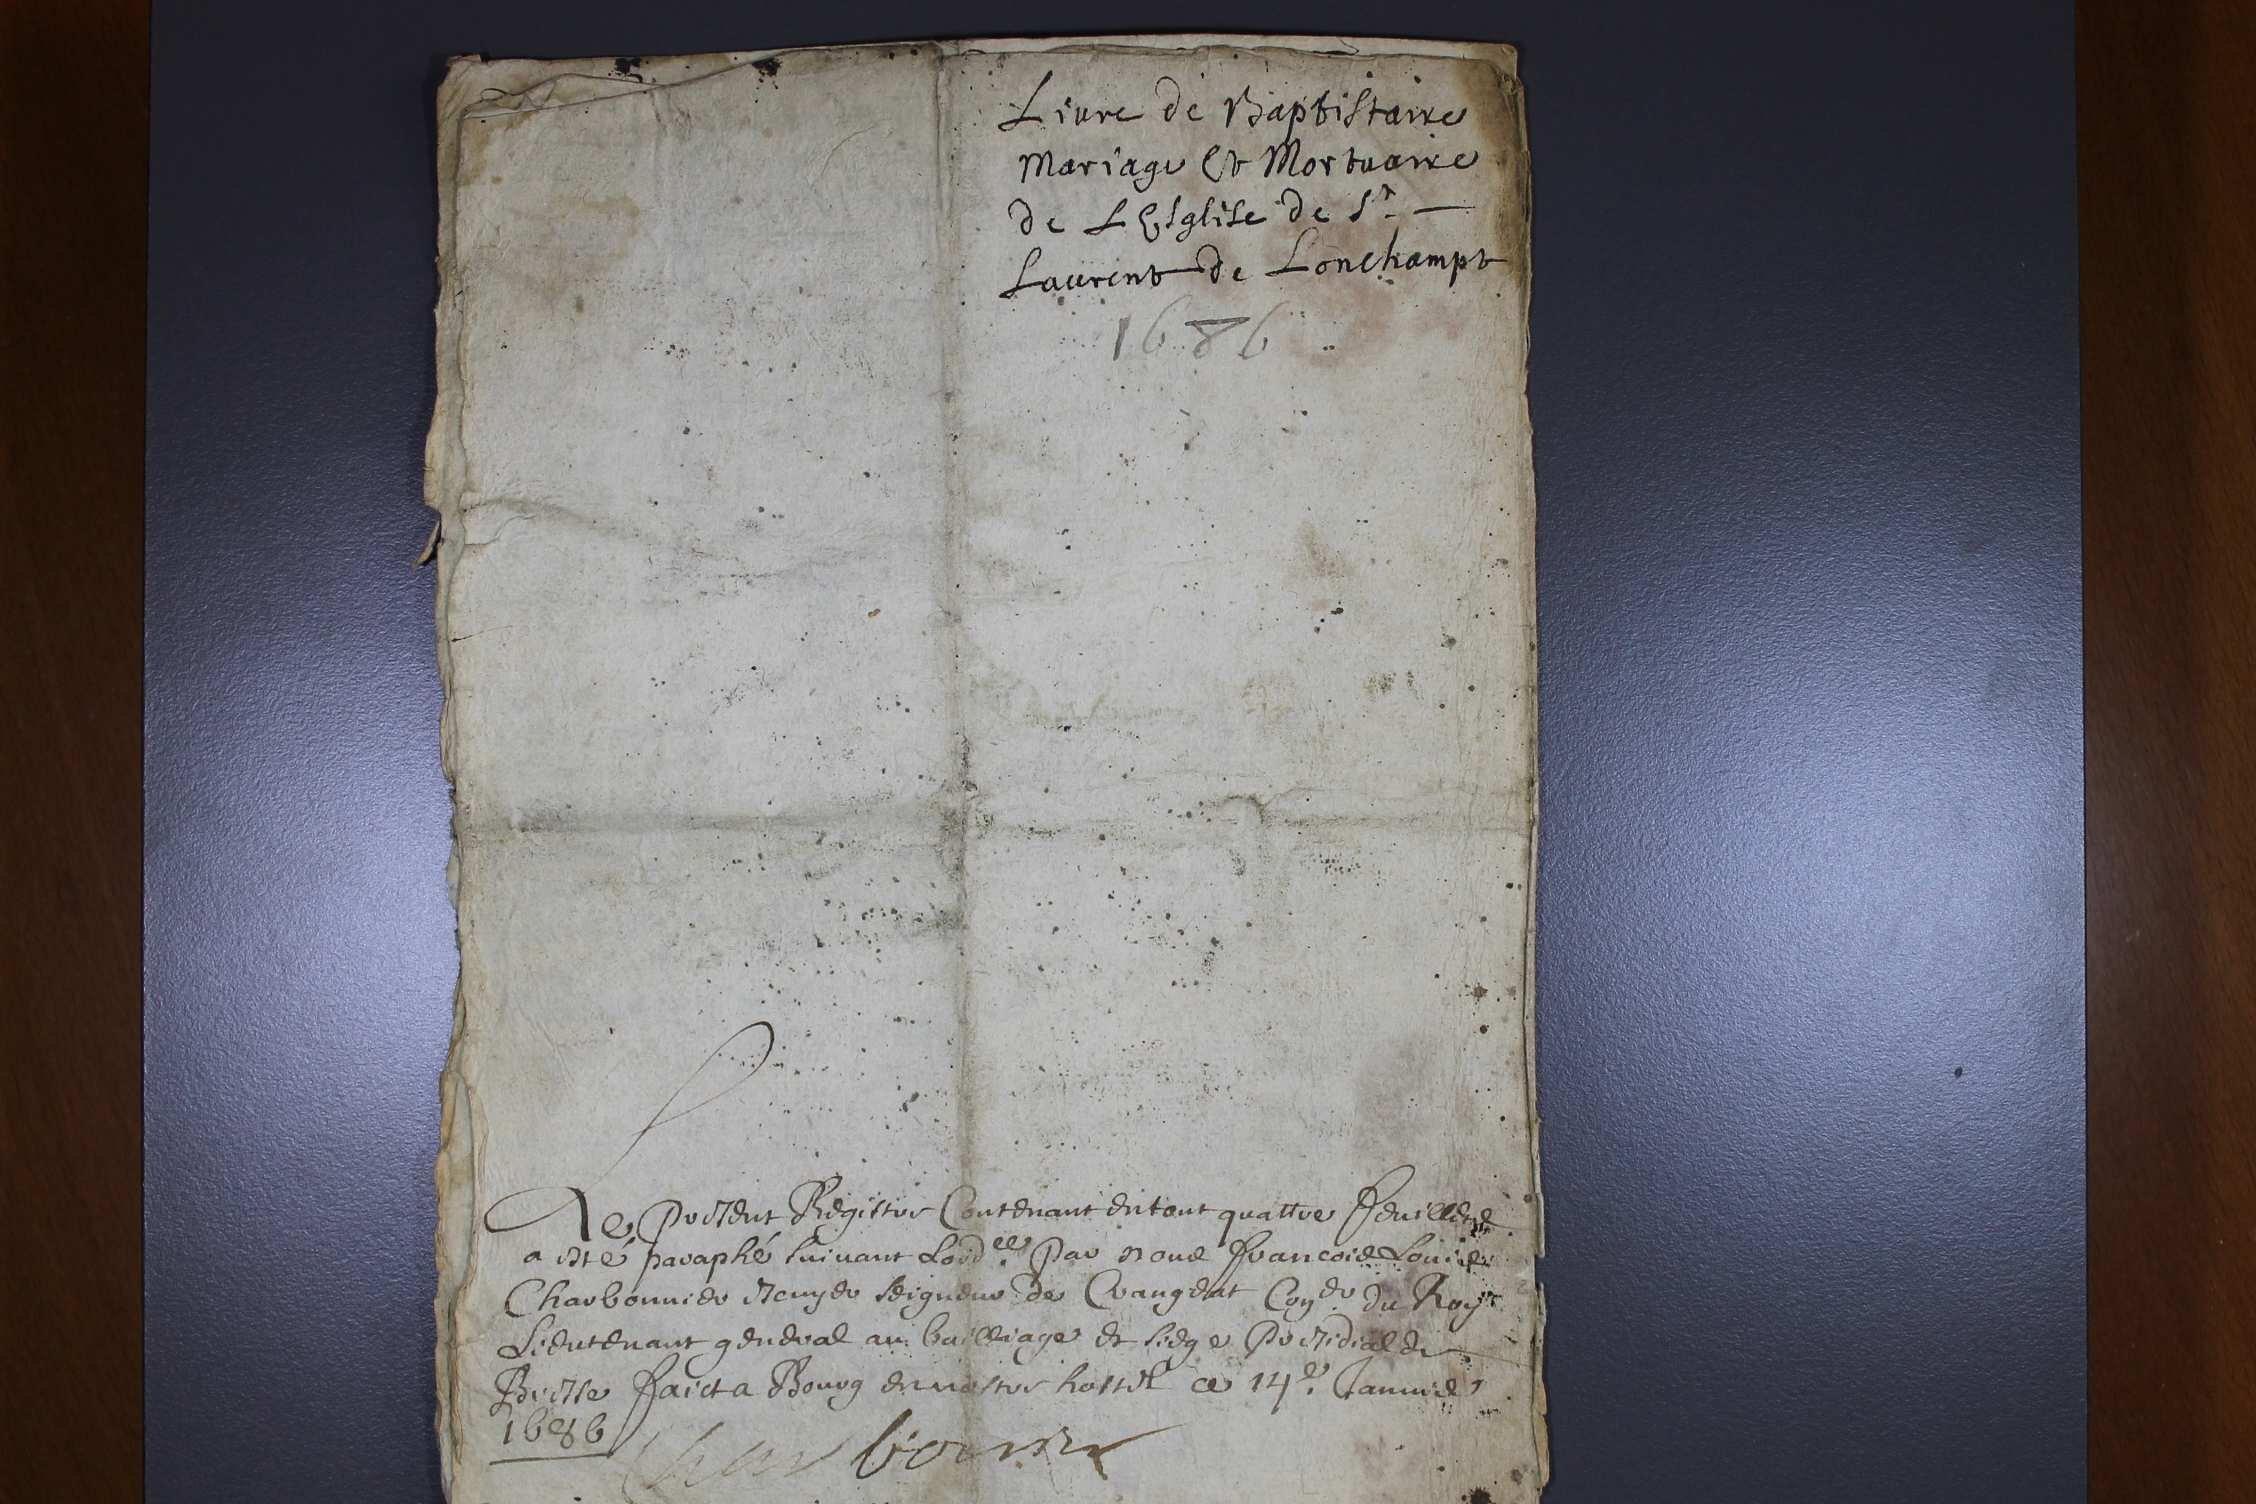 Liure de Baptistaire
Mariage Et Mortuaire
de LEsglise de St. —
Laurent de Lonchampt
1686
Le present Registre Contenant en tout quattre ffeuilletz
a esté paraphé suiuant Lordce. Par nous ffrancois Louis
Charbonnier Escuyer seigneur de Crangeat Coner. du Roy
Lieutenant general au bailliage et siege presidial de
Bresse ffaict a Bourg en nostre hostel ce 14e. Januier
1686
Charbonnier